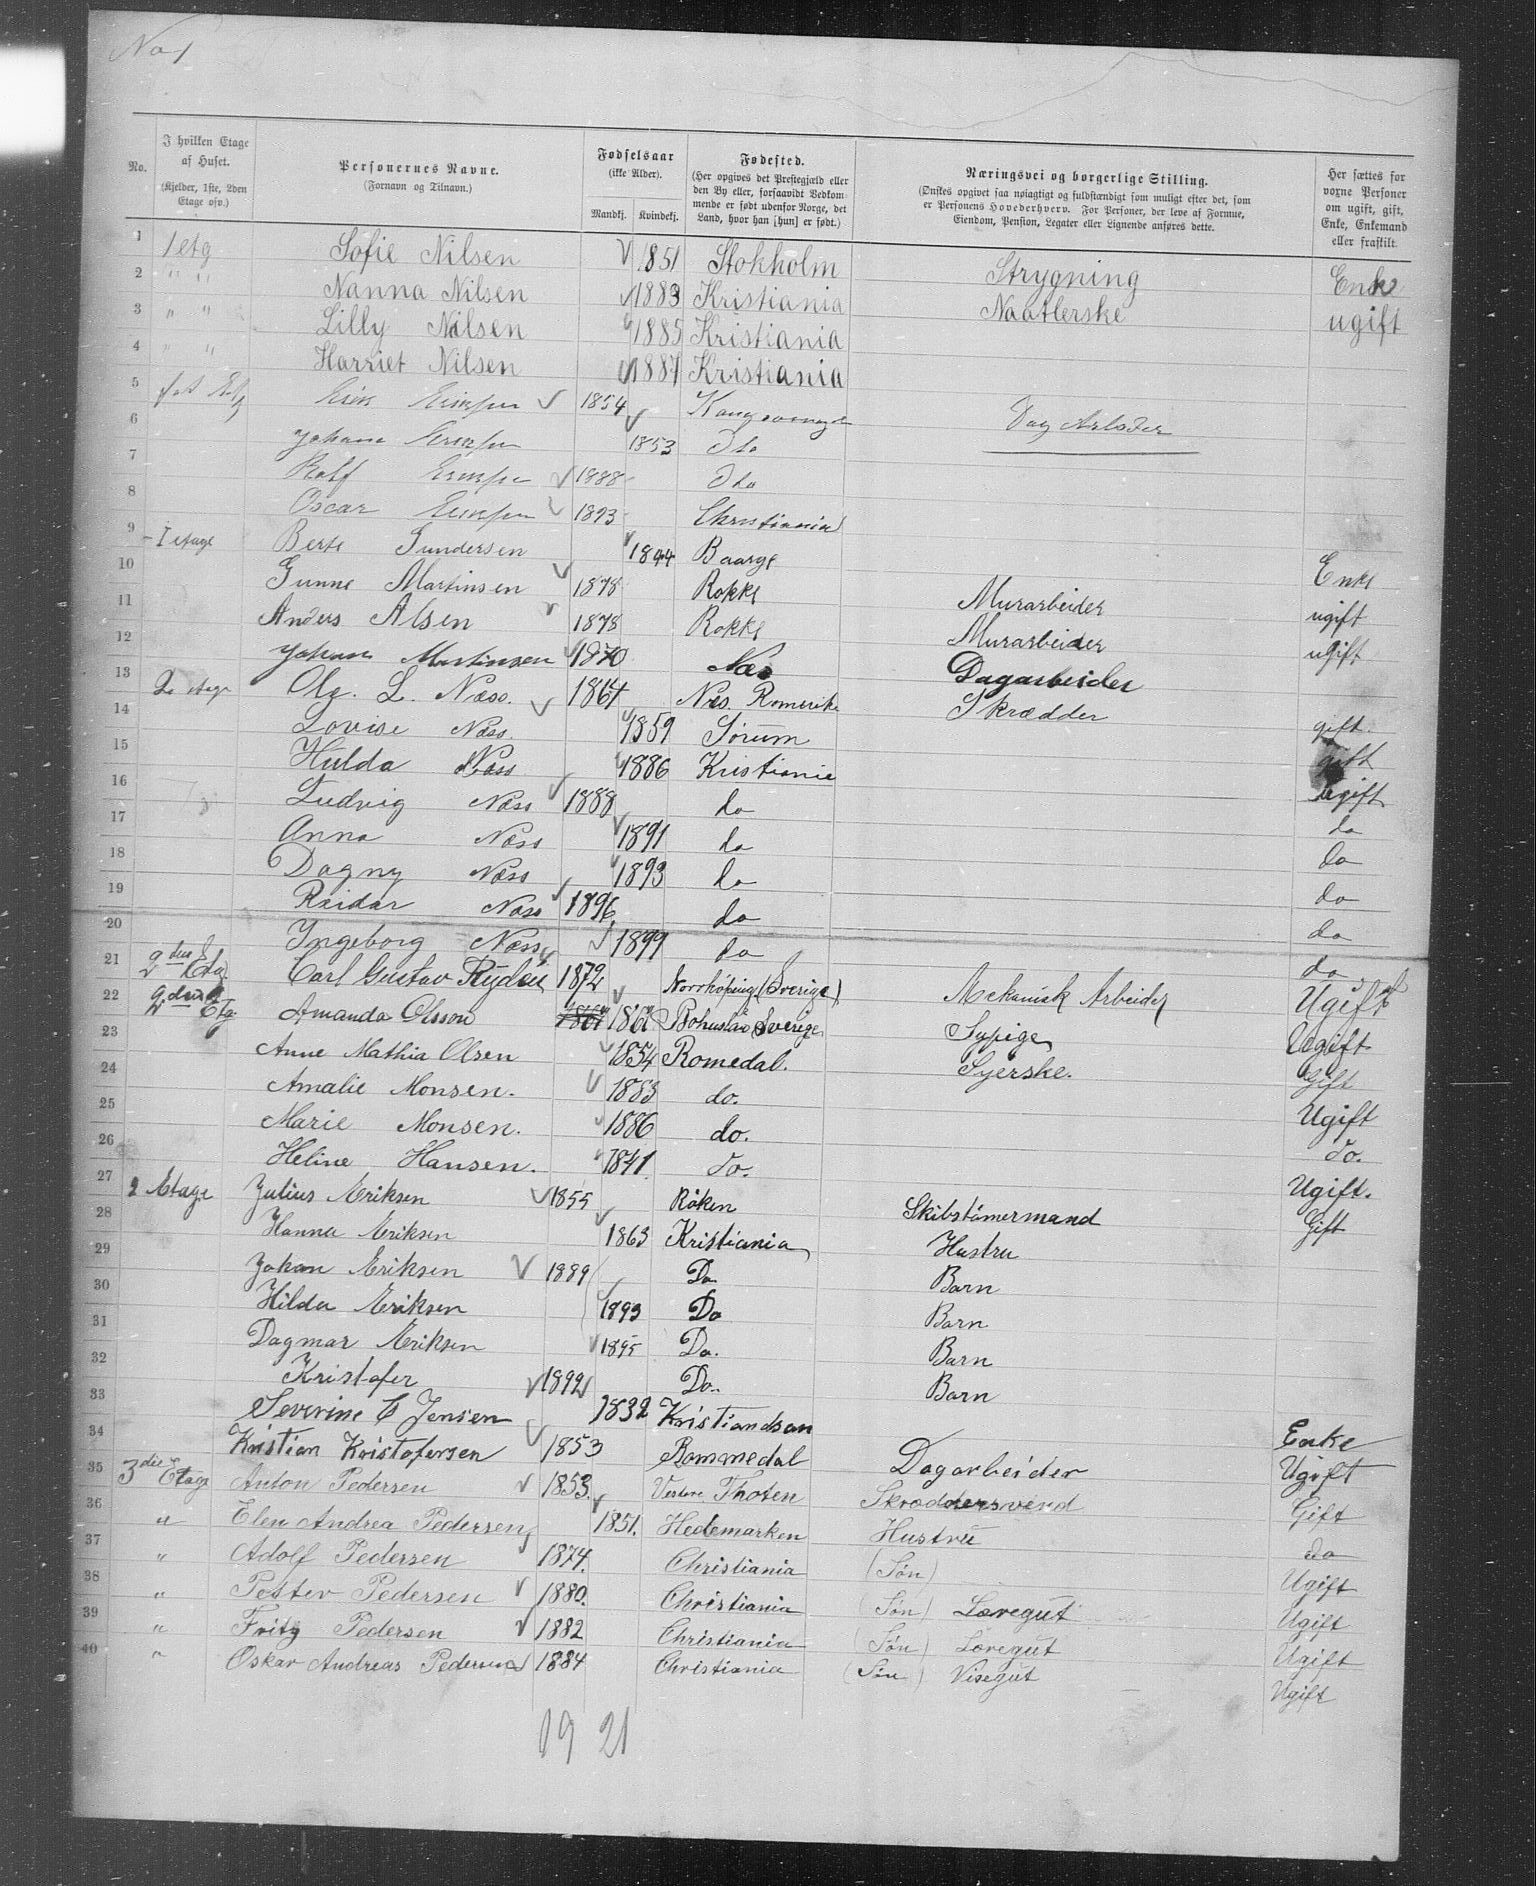 No 1
No.
I hvilken Etage af Huset. (Kjelder, 1ste, 2den Etage osv.)
Personernes Navne. (Fornavn og Tilnavn.)
Fødselsaar (ikke Alder).
Mandkj. Kvindekj.
Fødested. (Her opgives det Prestegjæld eller den By eller, forsaavidt Vedkommende er født udenfor Norge, det Land, hvor han [hun] er født.)
Næringsvei og borgerlige Stilling. (Ønskes opgivet saa nøiagtigt og fuldstændigt som muligt efter det, som er Personens Hovederhverv. For Personer, der leve af Formue, Eiendom, Pension, Legater eller Lignende anføres dette.
Her sættes for voxne Personer om ugift, gift, Enke, Enkemand eller fraskilt.
1 1 etg Sofie Nilsen 1851 Stokholm Strygning Enke
2 " " Nanna Nilsen 1883 Kristiania Naatlerske ugift
3 " " Lilly Nilsen 1885 Kristiania
4 " " Harriet Nilsen 1887 Kristiania
5 Erik Eriksen 1854 Dag Arbeder
6 Johane Eriksen 1853 Ito
7 Rolf Eriksen 1888 Ito
8 Oscar Eriksen 1893 Christiania
9 I etage Berte Gundersen 1844 Baarge Enke
10 Gunne Martinsen 1878 Rokke Murarbeider ugift
11 Anders Alsen 1878 Rokke Murarbeider ugift
12 Johan Martinsen 1870 Næs Dagarbeider
13 2 etage Olg. L. Næss. 1864 Næs. Romerike Skrædder gift
14 Lovise Næss. 1859 Sørum gift
15 Hulda Næss 1886 Kristiania ugift
16 Ludvig Næss 1888 do do
17 Anna Næss 1891 do do
18 Dagny Næss 1893 do do
19 Reidar Næss 1896 do do
20 Ingeborg Næss 1899 do do
21 2den Etg. Carl Gustav Rydeu 1872 Norrköping (Sverige) Mekanisk Arbeider Ugift
22 2den Etg Amanda Olsson 1861 Bohuslän Sverige Sypige Ugift
23 Anne Mathia Olsen 1854 Romedal. Syerske. Gift
24 Amalie Monsen. 1883 do. Ugift
25 Marie Monsen. 1886 do. do.
26 Heline Hansen. 1841. do. Ugift.
27 2 Etage Julius Eriksen 1855 Røken Skibstømermand Gift
28 Hanna Eriksen 1863 Kristiania Hustru
29 Johan Eriksen 1889 Do Barn
30 Hilda Eriksen 1893 Do Barn
31 Dagmar Eriksen 1895 Do. Barn
32 Kristofer 1892 Do. Barn
33 Severine C Jensen 1832 Kristiandsan Enke
34 Kristian Kristofersen 1853 Rommedal Dagarbeider Ugift
35 3die Etage Anton Pedersen 1853. Vestre Thoten Skræddersvend Gift
36 " Elen Andrea Pedersen 1851. Hedemarken Hustru do
37 " Adolf Pedersen 1874. Christiania (Søn) Ugift
38 " Petter Pedersen 1880. Christiania (Søn) Læregut Ugift
39 " Fritz Pedersen 1882 Christiania (Søn) Læregut Ugift
40 " Oskar Andreas Pedersen 1884 Christiania (Søn) Visegut Ugift
19 21